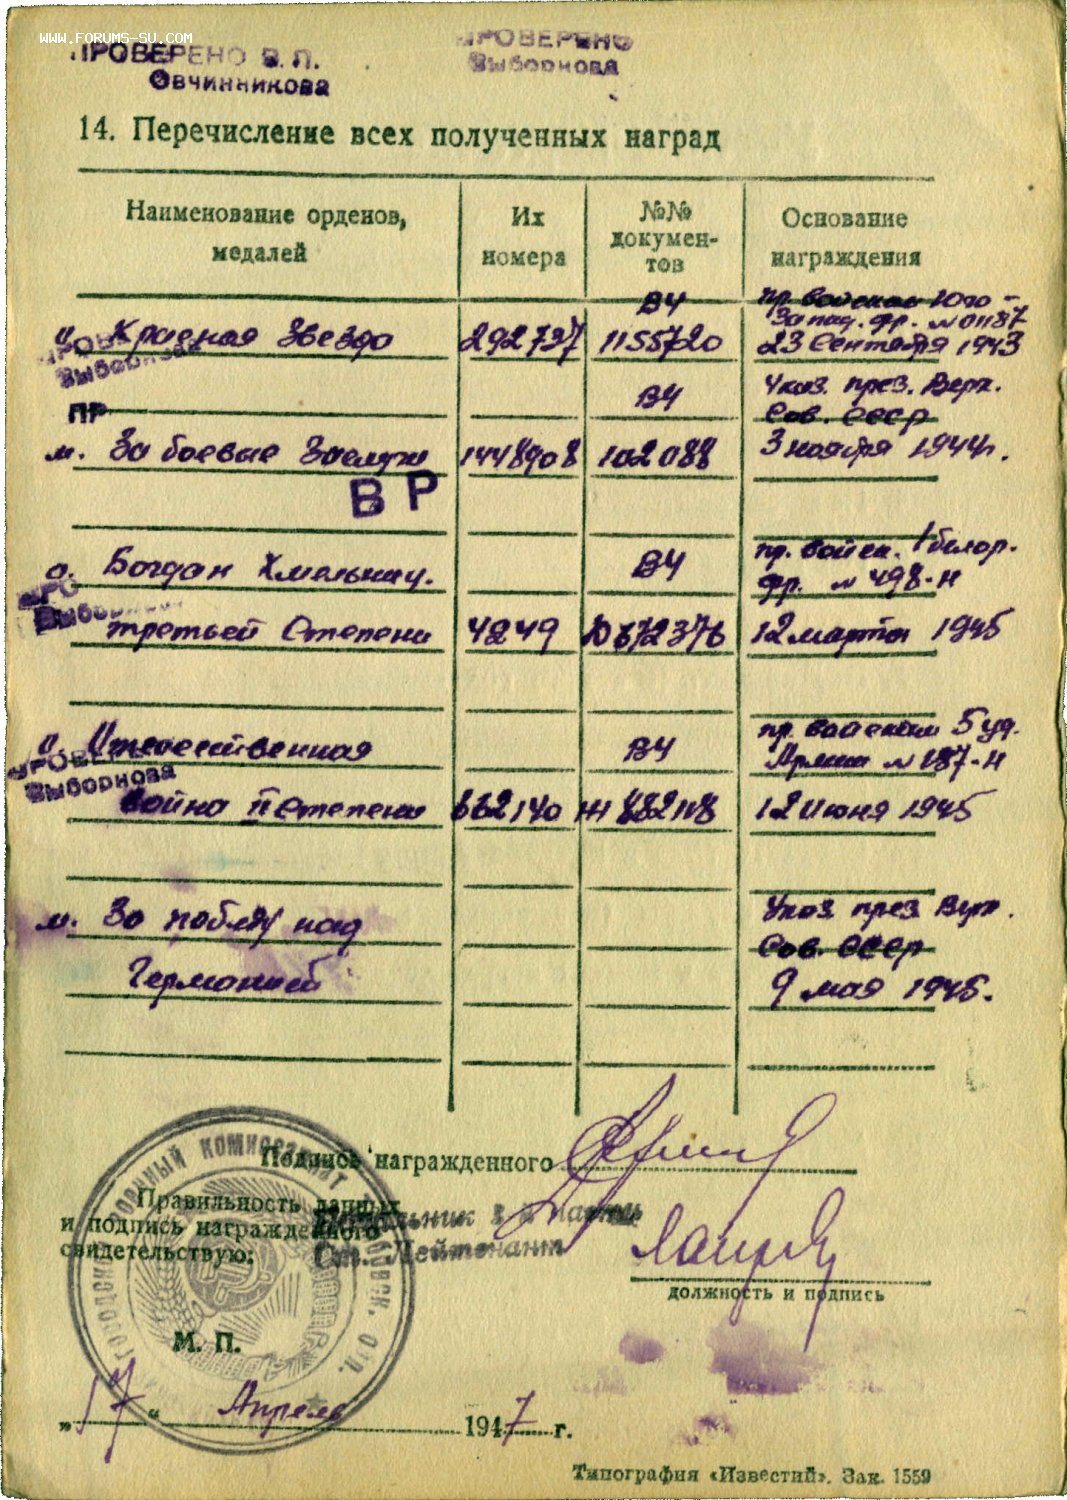 WWW.FORUMS-SU.COM
ПРОВЕРЕНО В.П.
Овчинникова
ПРОВЕРЕНО
Выборнова
14. Перечисление всех полученных наград
Наименование орденов, медалей
Их номера
№№ документов
Основание награждения
ВЧ пр. войскам Юго-
Запад. фр. №01187
о. Красная Звезда 292737 1155720 23 Сентября 1943
ПРОВЕ
Выборнова
ВЧ Указ. през. Верх.
Сов. СССР
ПР
м. За боевые Заслуги 1448908 102088 3 ноября 1944г.
ВР
о. Богдан Хмельниц. ВЧ пр. войск. 1 белор.
фр. №498-н
ПРО
Выборнова
третьей Степени 4249 672376 12 марта 1945
о. Отечественная ВЧ пр. войскам 5 уд.
Армии №187-н
ПРОВЕРЕНО
Выборнова
война II Степени 662140 12 Июня 1945
м. За победу над Указ през. Верх.
Сов. СССР
Германией 9 мая 1945.
Подпись награжденного
Правильность данных
и подпись награжденного
свидетельствую:
Начальник 3 й части
Ст. Лейтенант
должность и подпись
М. П.
„17“ Апрель 1947 г.
Типография «Известий». Зак. 1559